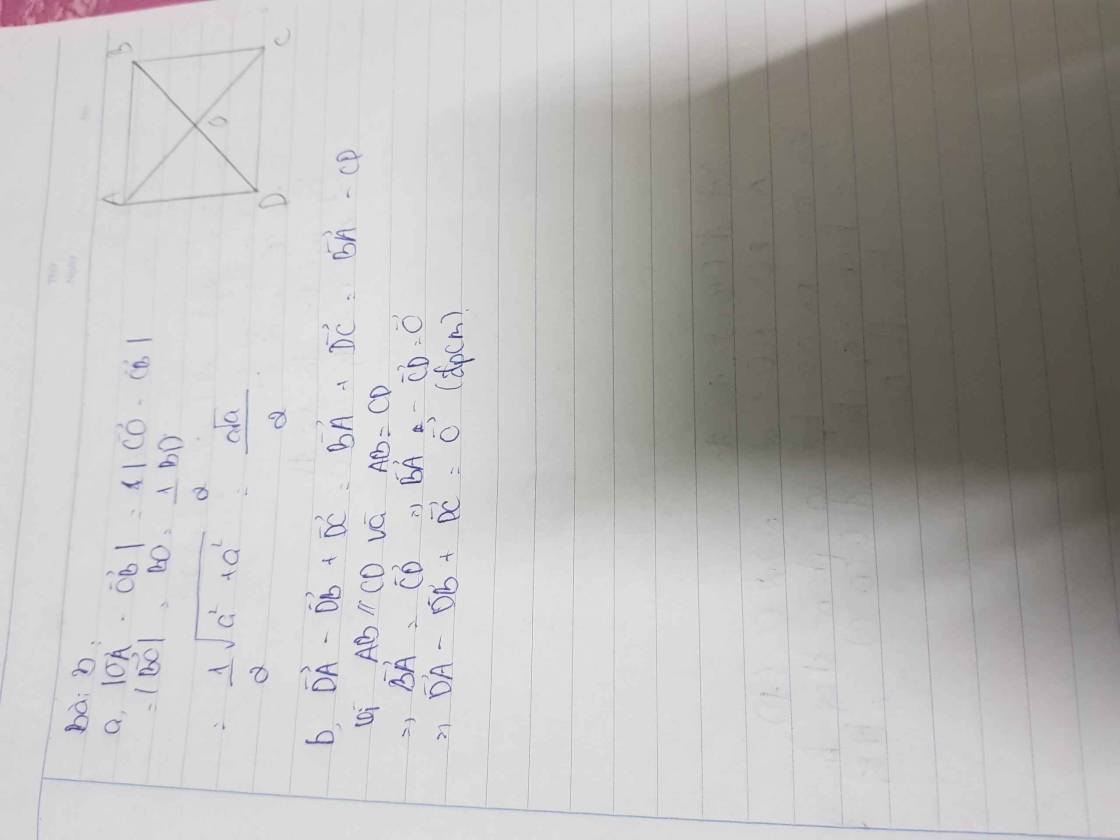 Bài 2
a, |OA⃗ - OB⃗| = 1|CO⃗ - CB⃗|
= |BO⃗| = BO = 1/2 BD
= 1/2 √(a² + a²) = a√a/2
b, DA⃗ - DB⃗ + DC⃗ = BA⃗ + DC⃗ = BA⃗ - CD
Vì AB // CD và AB = CD
=> BA⃗ = CD⃗ => BA⃗ - CD⃗ = 0⃗
=> DA⃗ - DB⃗ + DC⃗ = 0⃗ (đpcm)
A
B
C
D
O